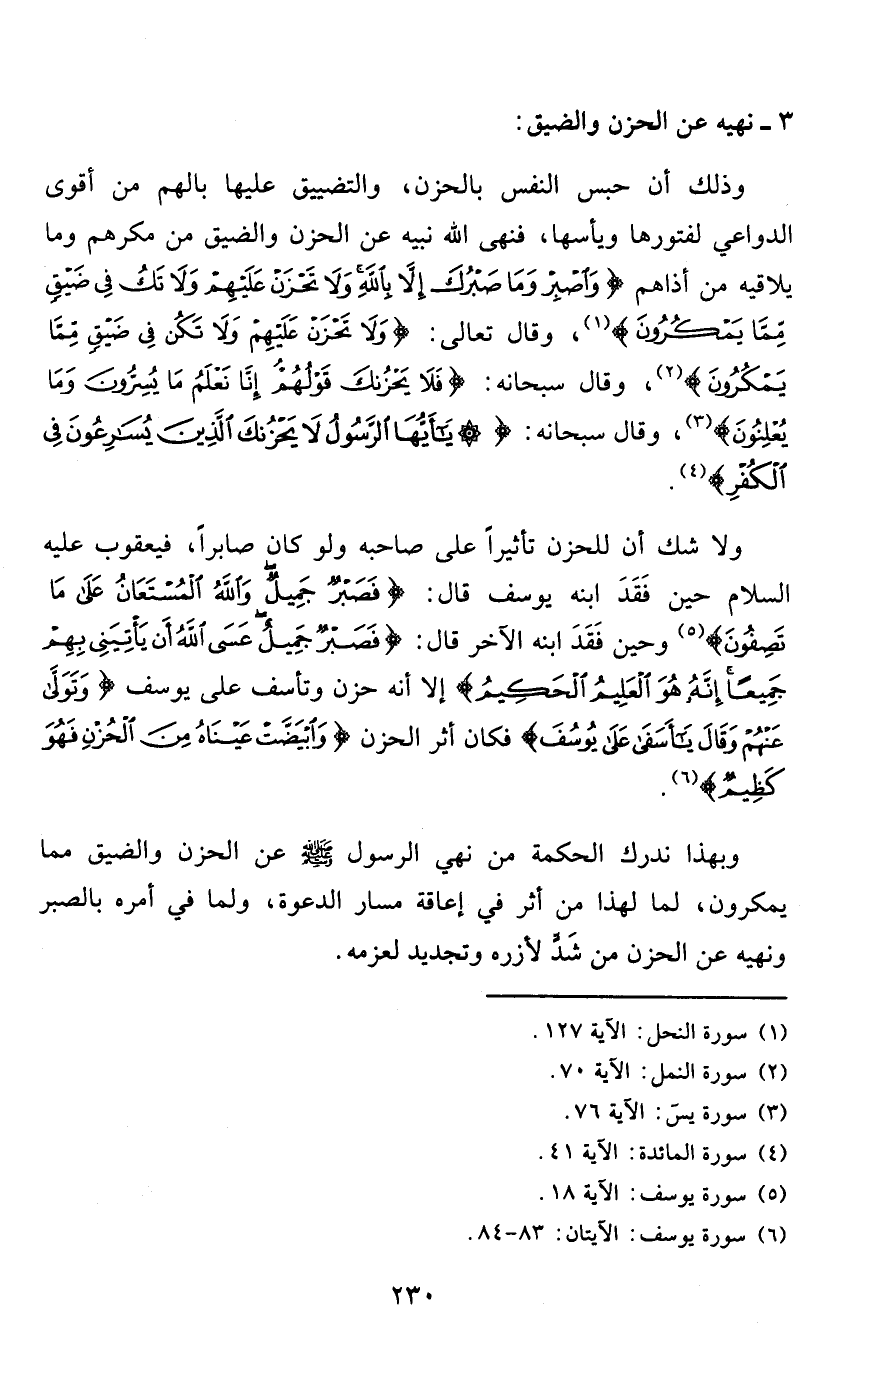 ٣ ـ نهيه عن الحزن والضيق:
وذلك أن حبس النفس بالحزن، والتضييق عليها بالهم من أقوى
الدواعي لفتورها ويأسها، فنهى الله نبيه عن الحزن والضيق من مكرهم وما
يلاقيه من أذاهم ﴿وَٱصْبِرْ وَمَا صَبْرُكَ إِلَّا بِٱللَّهِۚ وَلَا تَحْزَنْ عَلَيْهِمْ وَلَا تَكُ فِى ضَيْقٍ
مِّمَّا يَمْكُرُونَ﴾(١)، وقال تعالى: ﴿وَلَا تَحْزَنْ عَلَيْهِمْ وَلَا تَكُن فِى ضَيْقٍ مِّمَّا
يَمْكُرُونَ﴾(٢)، وقال سبحانه: ﴿فَلَا يَحْزُنكَ قَوْلُهُمْۘ إِنَّا نَعْلَمُ مَا يُسِرُّونَ وَمَا
يُعْلِنُونَ﴾(٣)، وقال سبحانه: ﴿۞ يَـٰٓأَيُّهَا ٱلرَّسُولُ لَا يَحْزُنكَ ٱلَّذِينَ يُسَـٰرِعُونَ فِى
ٱلْكُفْرِ﴾(٤).
ولا شك أن للحزن تأثيراً على صاحبه ولو كان صابراً، فيعقوب عليه
السلام حين فَقَدَ ابنه يوسف قال: ﴿فَصَبْرٌ جَمِيلٌۖ وَٱللَّهُ ٱلْمُسْتَعَانُ عَلَىٰ مَا
تَصِفُونَ﴾(٥) وحين فَقَدَ ابنه الآخر قال: ﴿فَصَبْرٌ جَمِيلٌۖ عَسَى ٱللَّهُ أَن يَأْتِيَنِى بِهِمْ
جَمِيعًاۚ إِنَّهُۥ هُوَ ٱلْعَلِيمُ ٱلْحَكِيمُ﴾ إلا أنه حزن وتأسف على يوسف ﴿وَتَوَلَّىٰ
عَنْهُمْ وَقَالَ يَـٰٓأَسَفَىٰ عَلَىٰ يُوسُفَ﴾ فكان أثر الحزن ﴿وَٱبْيَضَّتْ عَيْنَاهُ مِنَ ٱلْحُزْنِ فَهُوَ
كَظِيمٌ﴾(٦).
وبهذا ندرك الحكمة من نهي الرسول ﷺ عن الحزن والضيق مما
يمكرون، لما لهذا من أثر في إعاقة مسار الدعوة، ولما في أمره بالصبر
ونهيه عن الحزن من شَدٍّ لأزره وتجديد لعزمه.
(١) سورة النحل: الآية ١٢٧.
(٢) سورة النمل: الآية ٧٠.
(٣) سورة يسَ: الآية ٧٦.
(٤) سورة المائدة: الآية ٤١.
(٥) سورة يوسف: الآية ١٨.
(٦) سورة يوسف: الآيتان: ٨٣-٨٤.
٢٣٠